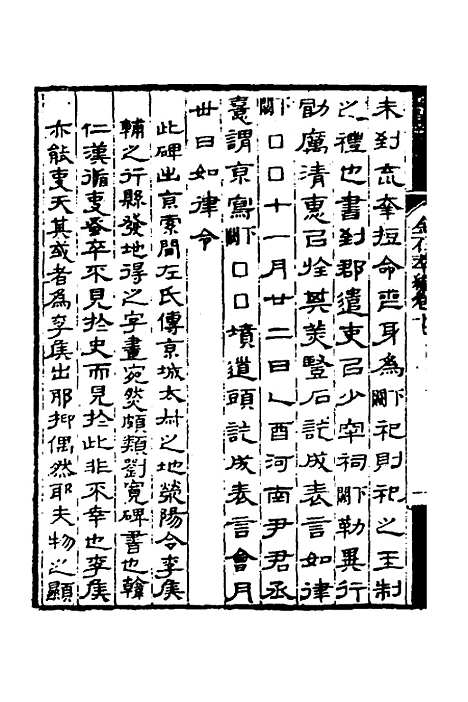 未到㐬奪短命喪身為下闕祀則祀之王制
之禮也書到郡遣吏㠯少牢祠下闕勒異行
勖厲清惠㠯旌其美豎石訖成表言如律
下闕口口十一月廿二日乙酉河南尹君丞
憙謂京寫下闕口口墳道頭訖成表言會月
丗日如律令
此碑出京索間左氏傳京城太叔之地滎陽令李侯
輔之行縣發地得之字畫宛然頗類劉寬碑書也韓
仁漢循吏蚤卒不見於史而見於此非不幸也李侯
亦能吏天其或者為李侯出耶抑偶然耶夫物之顯
金石萃編卷十